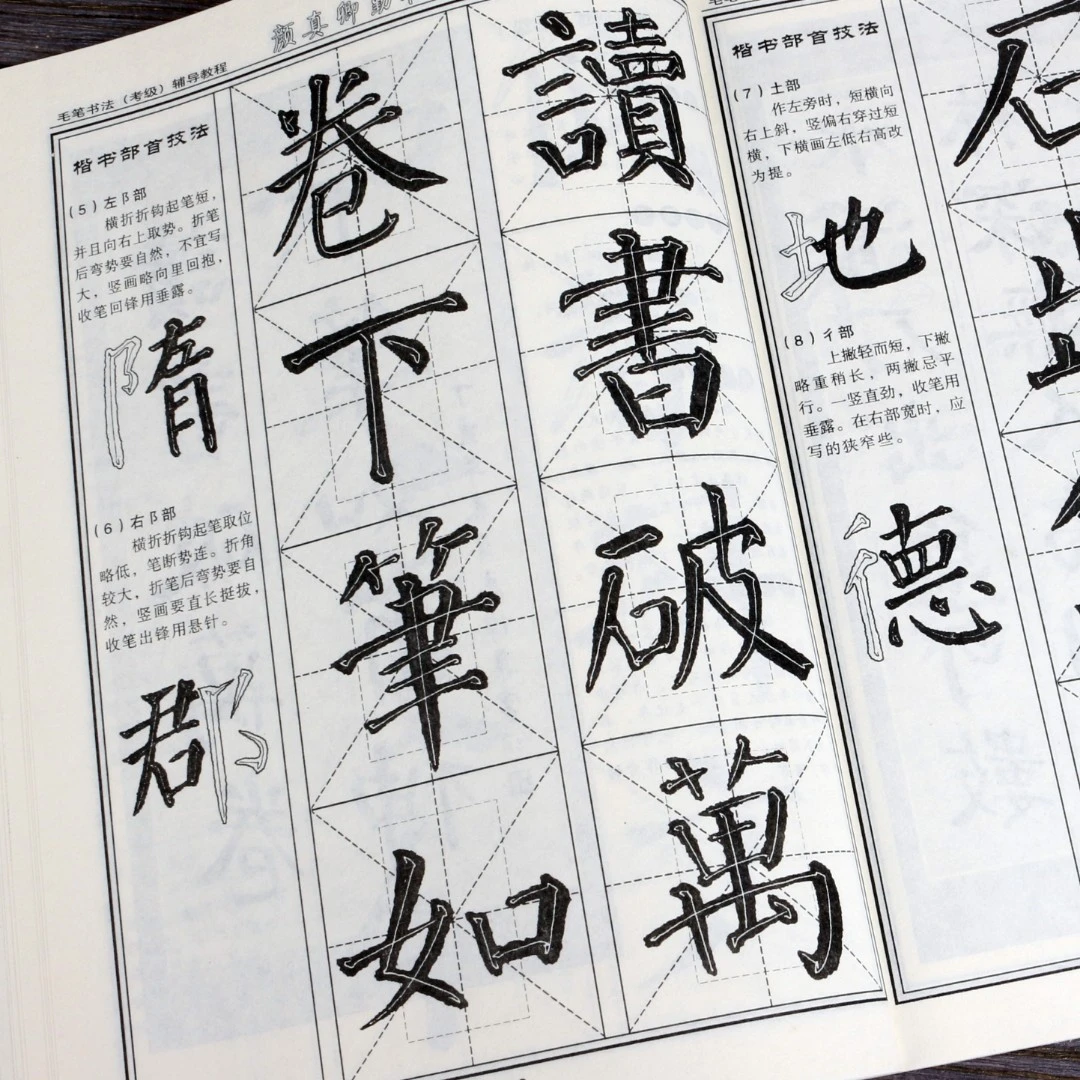 毛笔书法（考级）辅导教程
颜真卿勤
楷书部首技法
(5) 左阝部
横折折钩起笔短，
并且向右上取势。折笔
后弯势要自然，不宜写
大，竖画略向里回抱，
收笔回锋用垂露。
隋
(6) 右阝部
横折折钩起笔取位
略低，笔断势连。折角
较大，折笔后弯势要自
然，竖画要直长挺拔，
收笔出锋用悬针。
郡
讀書破萬
卷下筆如
楷书部首技法
(7) 土部
作左旁时，短横向
右上斜，竖偏右穿过短
横，下横画左低右高改
为提。
地
(8) 彳部
上撇轻而短，下撇
略重稍长，两撇忌平
行。一竖直劲，收笔用
垂露。在右部宽时，应
写的狭窄些。
德